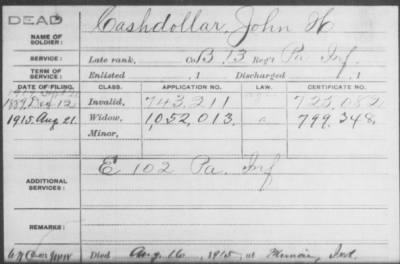 DEAD
NAME OF SOLDIER: Cashdollar, John H
SERVICE: Late rank, Co. B. 13 Reg't Pa. Inf.
TERM OF SERVICE: Enlisted , 1 Discharged , 1
DATE OF FILING. CLASS. APPLICATION NO. LAW. CERTIFICATE NO.
1889, Dec 12 Invalid, 743,211 723,082
1915, Aug 21. Widow, 1,052,013. 799,348,
Minor,
ADDITIONAL SERVICES: E 102 Pa. Inf
REMARKS:
Died Aug 16, 1915, at Ind.